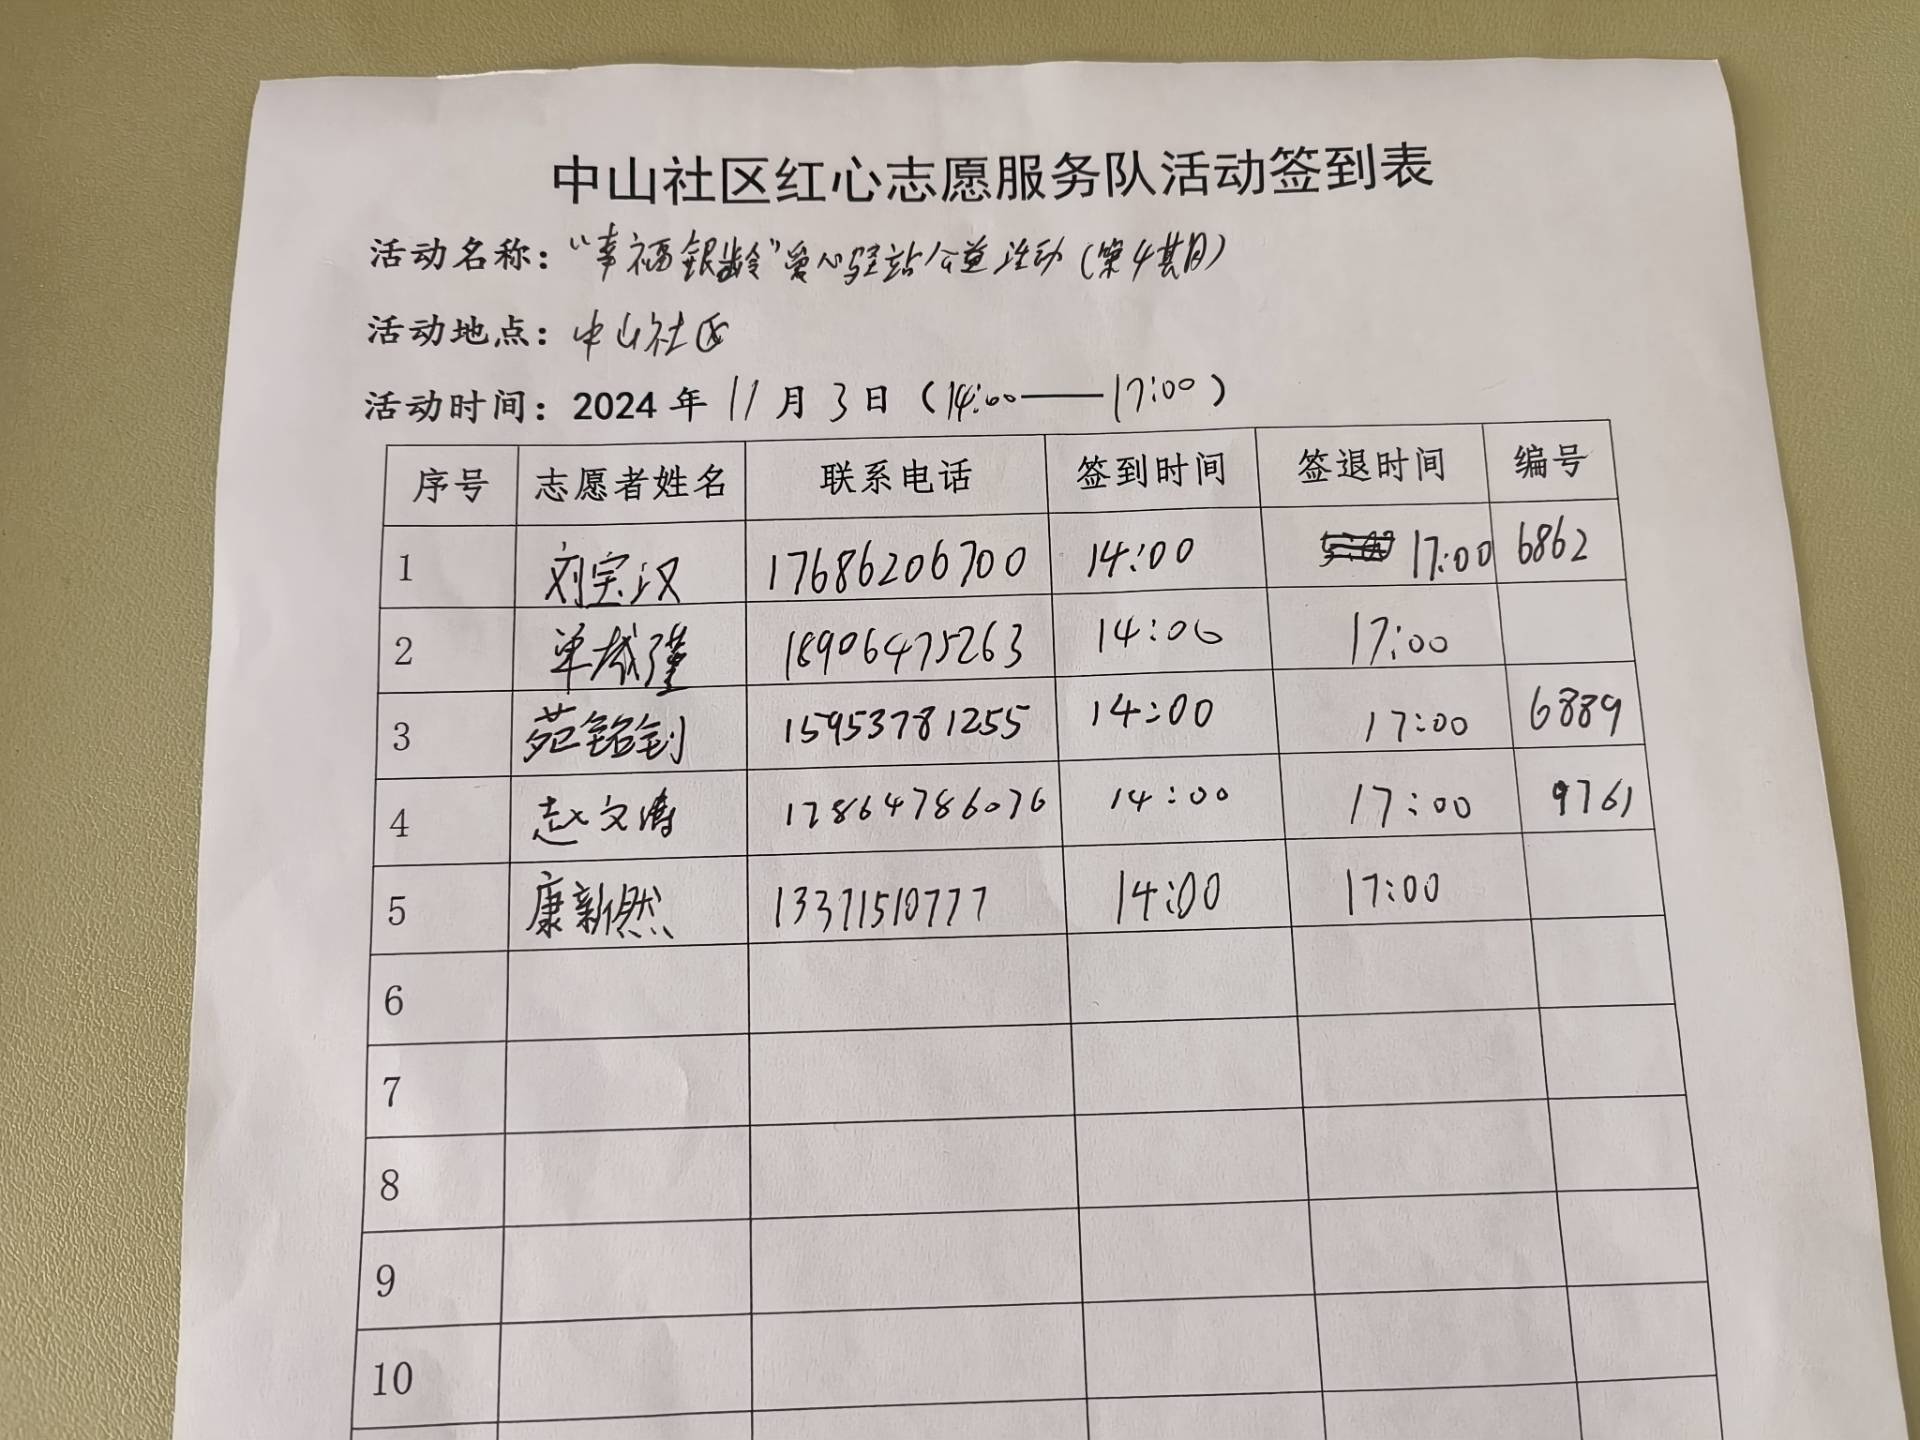 中山社区红心志愿服务队活动签到表
活动名称：“幸福银龄”爱心驿站公益活动（第4期）
活动地点：中山社区
活动时间：2024年11月3日（14:00——17:00）
序号 志愿者姓名 联系电话 签到时间 签退时间 编号
1 刘宝汉 17686206700 14:00 17:00 6862
2 单域瑾 18906475263 14:00 17:00
3 苑铭钊 15953781255 14:00 17:00 6889
4 赵文涛 17864786076 14:00 17:00 9761
5 康新然 13371510777 14:00 17:00
6
7
8
9
10